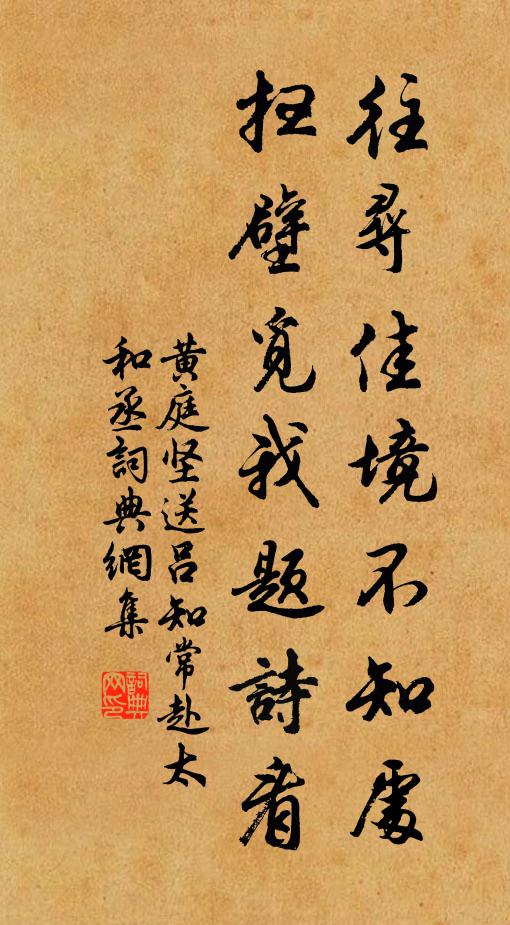 往尋佳境不知處
扫壁覓我題詩看
黄庭坚送吕知常赴太
和丞詞典網集
詞典網印